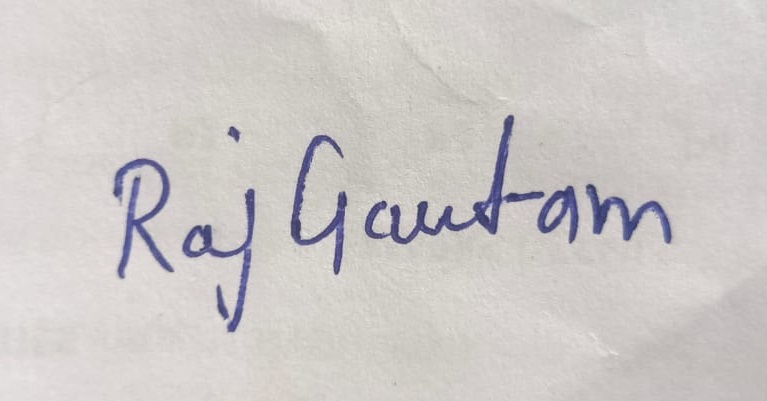 Raj Gautam